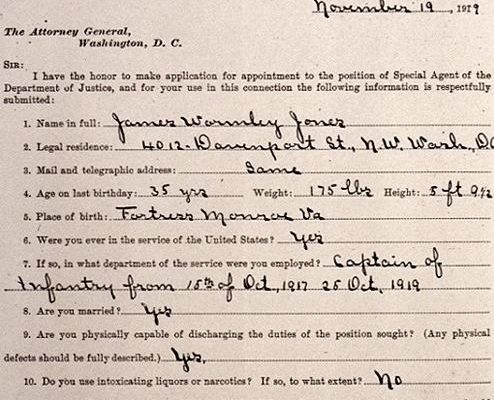 November 19, 1919
The Attorney General,
Washington, D. C.
SIR:
I have the honor to make application for appointment to the position of Special Agent of the
Department of Justice, and for your use in this connection the following information is respectfully
submitted:
1. Name in full: James Wormley Jones
2. Legal residence: 4012-Davenport St., N.W. Wash., DC
3. Mail and telegraphic address: Same
4. Age on last birthday: 35 yrs Weight: 175 lbs Height: 5 ft 9½
5. Place of birth: Fortress Monroe Va
6. Were you ever in the service of the United States? Yes
7. If so, in what department of the service were you employed? Captain of
Infantry from 15th of Oct., 1917 25 Oct, 1919
8. Are you married? Yes
9. Are you physically capable of discharging the duties of the position sought? (Any physical
defects should be fully described.) Yes.
10. Do you use intoxicating liquors or narcotics? If so, to what extent? No